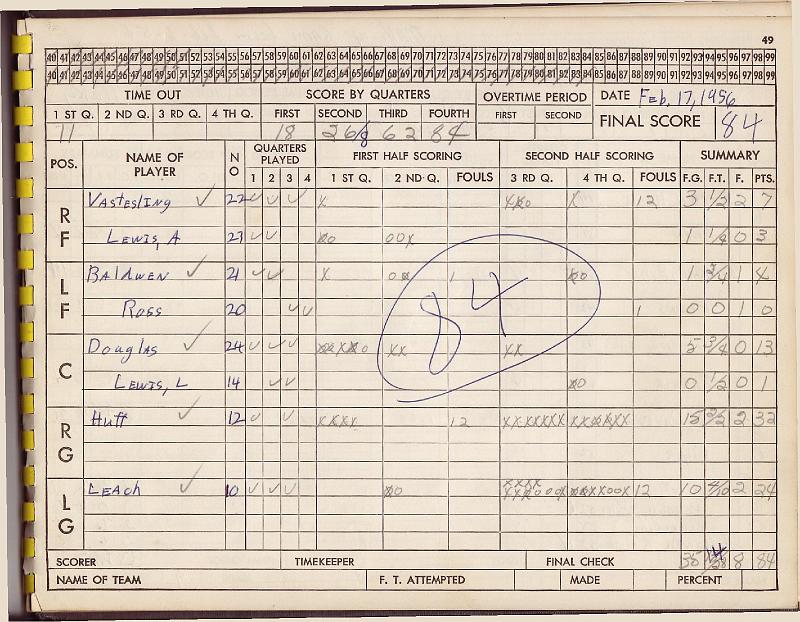 49
40 41 42 43 44 45 46 47 48 49 50 51 52 53 54 55 56 57 58 59 60 61 62 63 64 65 66 67 68 69 70 71 72 73 74 75 76 77 78 79 80 81 82 83 84 85 86 87 88 89 90 91 92 93 94 95 96 97 98 99
40 41 42 43 44 45 46 47 48 49 50 51 52 53 54 55 56 57 58 59 60 61 62 63 64 65 66 67 68 69 70 71 72 73 74 75 76 77 78 79 80 81 82 83 84 85 86 87 88 89 90 91 92 93 94 95 96 97 98 99
TIME OUT SCORE BY QUARTERS OVERTIME PERIOD DATE Feb. 17, 1956
1 ST Q. 2 ND Q. 3 RD Q. 4 TH Q. FIRST SECOND THIRD FOURTH FIRST SECOND FINAL SCORE 84
11 18 26 62 84
POS. NAME OF PLAYER NO QUARTERS PLAYED FIRST HALF SCORING SECOND HALF SCORING SUMMARY
1 2 3 4 1 ST Q. 2 ND Q. FOULS 3 RD Q. 4 TH Q. FOULS F.G. F.T. F. PTS.
RF Vastesling ✓ 22 ✓ ✓ ✓ X X 12 3 1/2 2 7
Lewis, A 23 ✓ ✓ 00X 1 1/4 0 3
LF Baldwen ✓ 21 ✓ ✓ X 1 1 2/4 1 4
Ross 20 ✓ ✓ 1 0 0 1 0
C Douglas ✓ 24 ✓ ✓ ✓ XX XX 5 3/4 0 13
Lewis, L 14 ✓ ✓ 0 1/2 0 1
RG Huff ✓ 12 ✓ ✓ XXXX 12 15 2/2 2 32
LG Leach ✓ 10 ✓ ✓ ✓ XXXX 12 10 4/10 2 24
84
SCORER TIMEKEEPER FINAL CHECK 35 14/28 8 84
NAME OF TEAM F. T. ATTEMPTED MADE PERCENT